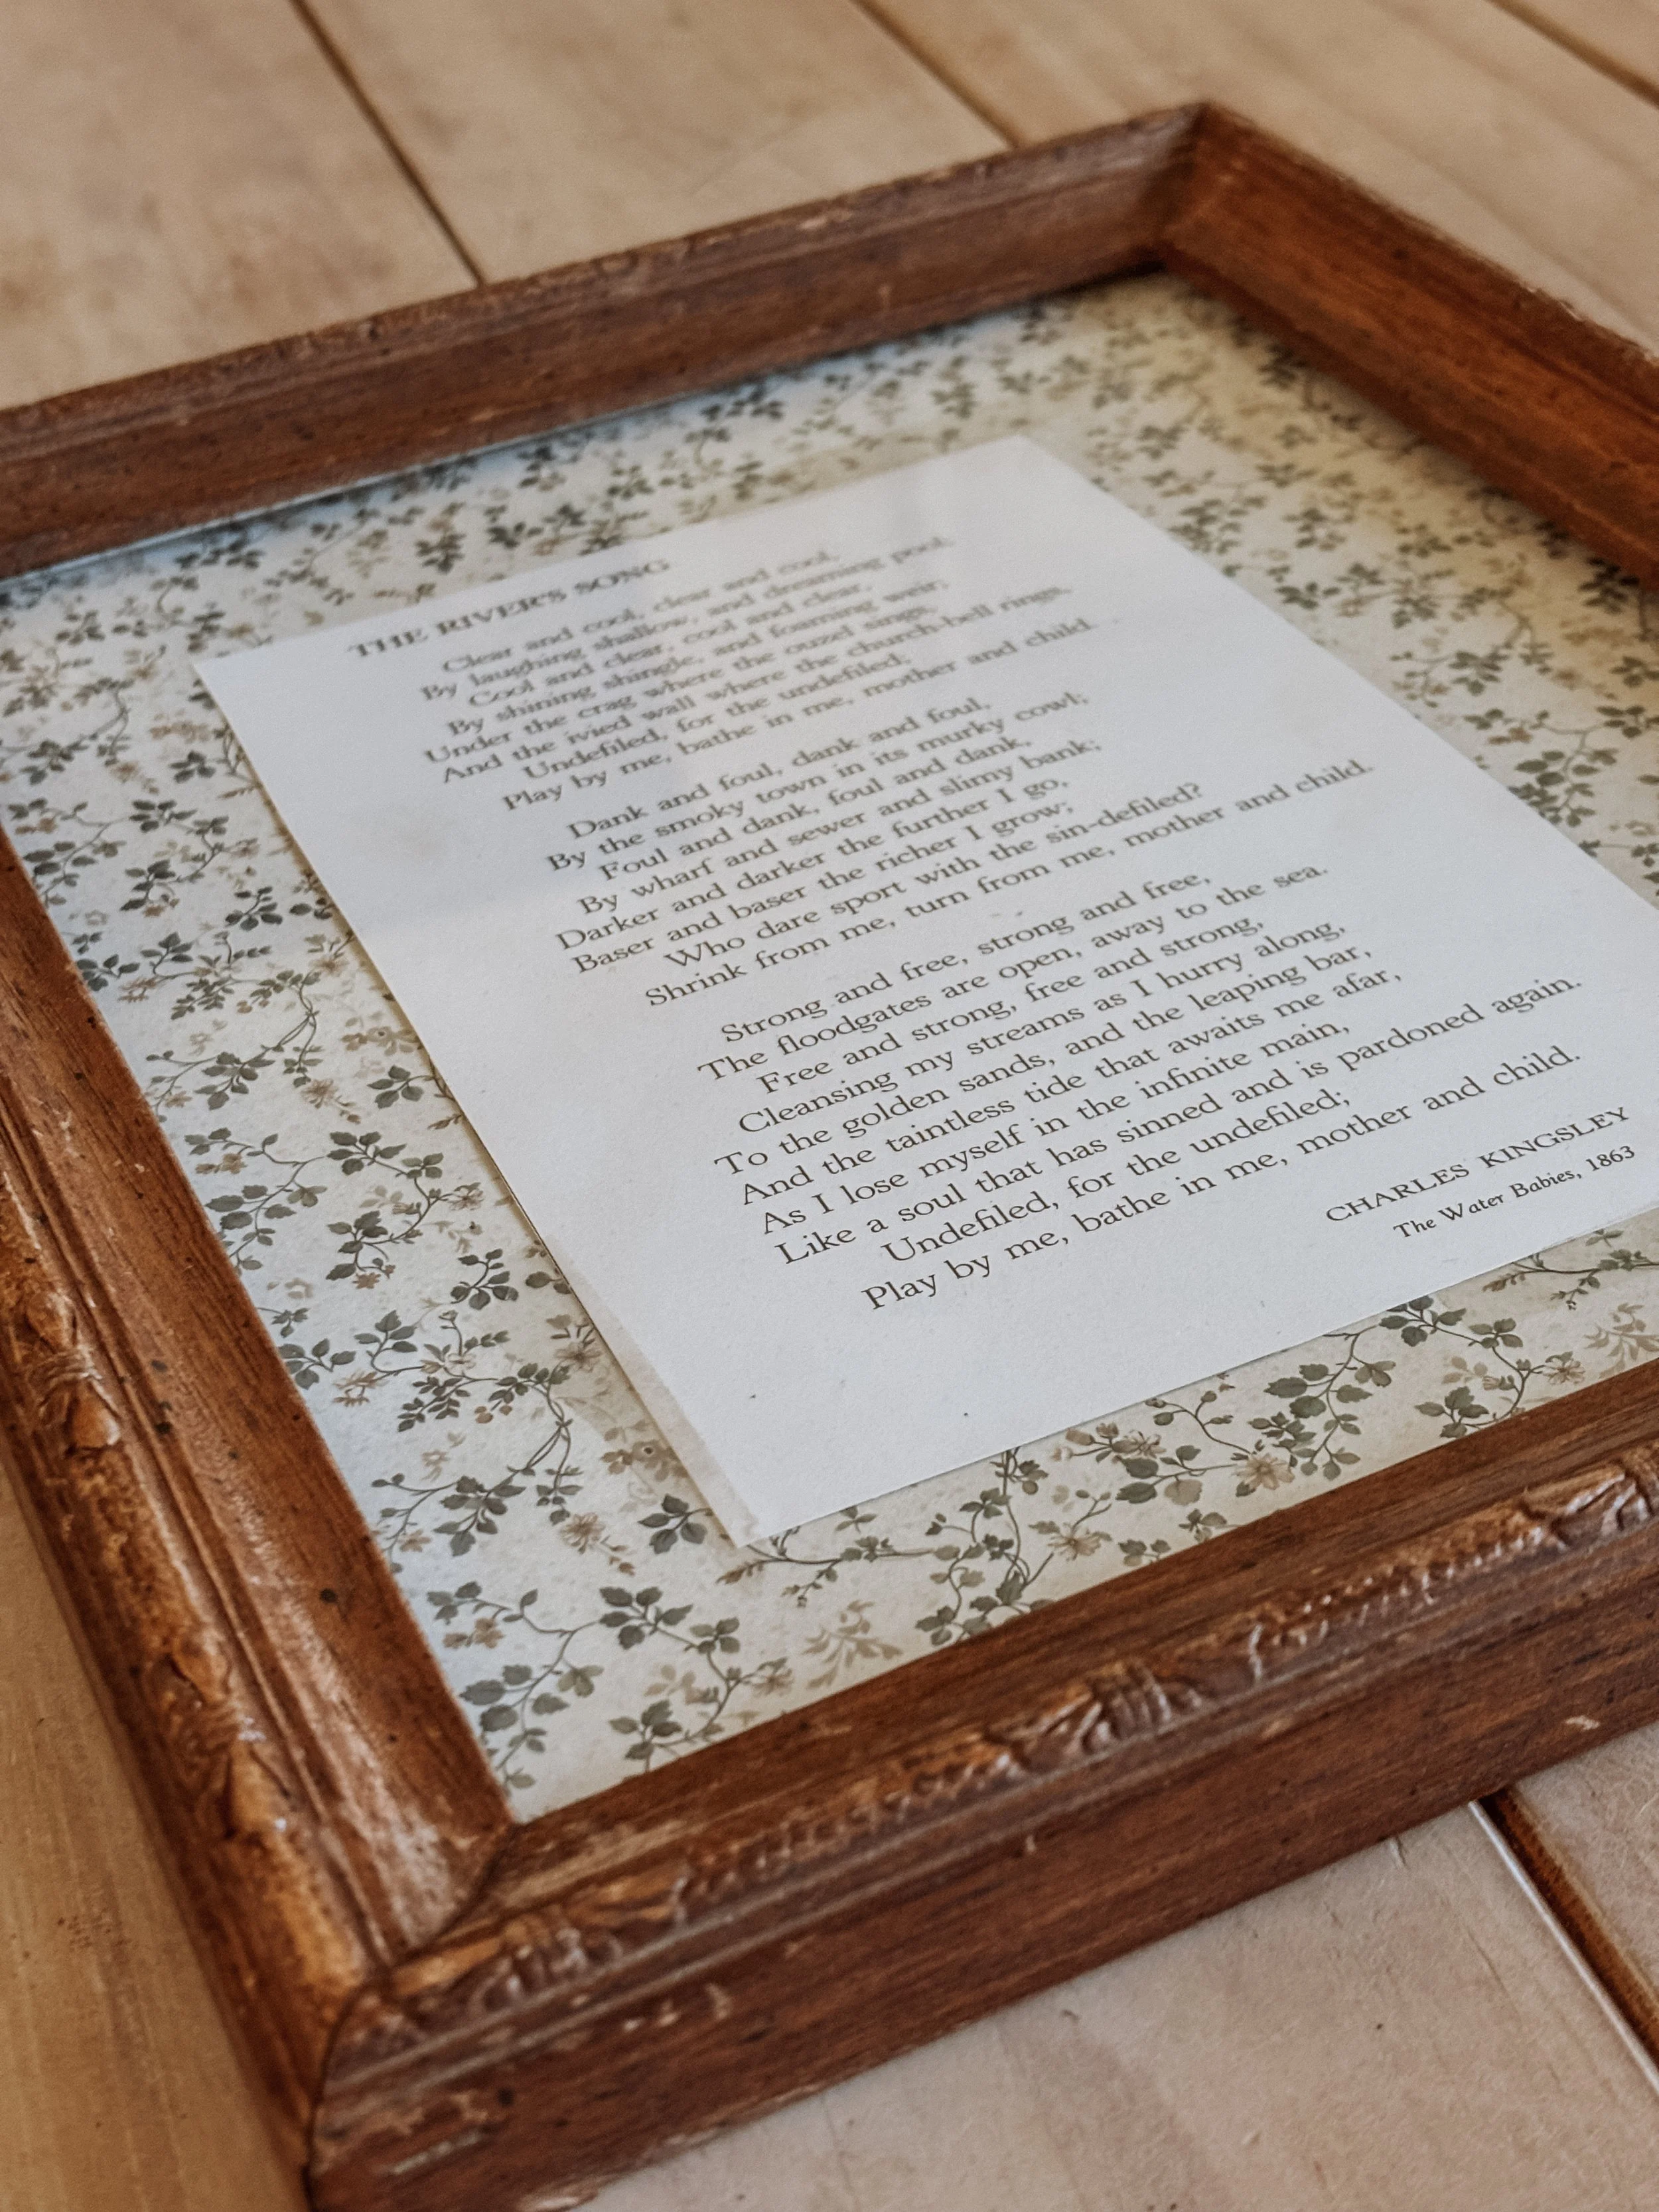 THE RIVER'S SONG
Clear and cool, clear and cool,
By laughing shallow, and dreaming pool;
Cool and clear, cool and clear,
By shining shingle, and foaming weir;
Under the crag where the ouzel sings,
And the ivied wall where the church-bell rings,
Undefiled, for the undefiled;
Play by me, bathe in me, mother and child.
Dank and foul, dank and foul,
By the smoky town in its murky cowl;
Foul and dank, foul and dank,
By wharf and sewer and slimy bank;
Darker and darker the further I go,
Baser and baser the richer I grow;
Who dare sport with the sin-defiled?
Shrink from me, turn from me, mother and child.
Strong and free, strong and free,
The floodgates are open, away to the sea.
Free and strong, free and strong,
Cleansing my streams as I hurry along,
To the golden sands, and the leaping bar,
And the taintless tide that awaits me afar,
As I lose myself in the infinite main,
Like a soul that has sinned and is pardoned again.
Undefiled, for the undefiled;
Play by me, bathe in me, mother and child.
CHARLES KINGSLEY
The Water Babies, 1863